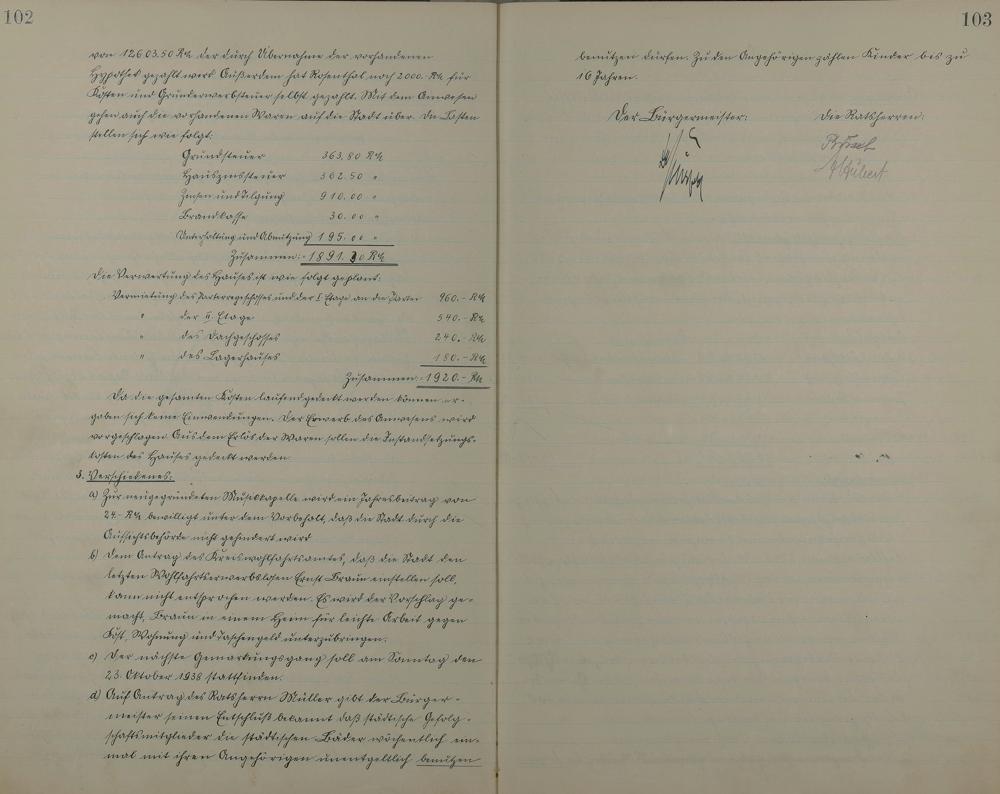 102
von 12603.50 RM der durch Übernahme der vorhandenen
Hypothek gezahlt wird. Außerdem hat Rosenthal noch 2000.- RM für
Kosten und Grunderwerbsteuer selbst gezahlt. Mit dem Anwesen
gehen auch die vorhandenen Waren auf die Stadt über. Die Lasten
stellen sich wie folgt:
Grundsteuer 363.80 RM
Hauszinssteuer 302.50 "
Zinsen und Tilgung 910.00 "
Brandkasse 30.00 "
Unterhaltung und Abnützung 195.00 "
Zusammen: 1891.30 RM
Die Verwertung des Hauses ist wie folgt geplant:
Vermietung des Parterregeschosses und der I. Etage an die 960.- RM
" der II. Etage 540.- RM
" des Dachgeschosses 240.- RM
" des Lagerhauses 180.- RM
Zusammen: 1920.- RM
Da die gesamten Kosten laufend gedeckt werden können er-
gaben sich keine Einwendungen. Der Erwerb des Anwesens wird
vorgeschlagen. Aus dem Erlös der Waren sollen die Instandsetzungs-
kosten des Hauses gedeckt werden
3. Verschiedenes:
a) Zur neugegründeten Musikkapelle wird ein Jahresbeitrag von
24.- RM bewilligt unter dem Vorbehalt, daß die Stadt durch die
Aufsichtsbehörde nicht gehindert wird
b) Dem Antrag des Kreiswohlfahrtsamtes, daß die Stadt den
letzten Wohlfahrtserwerbslosen Ernst Braun einstellen soll,
kann nicht entsprochen werden. Es wird der Vorschlag ge-
macht, Braun in einem Heim für leichte Arbeit gegen
Kost, Wohnung und Taschengeld unterzubringen.
c) Der nächste Gemarkungsgang soll am Sonntag den
23. Oktober 1938 stattfinden.
d) Auf Antrag des Ratsherrn Müller gibt der Bürger-
meister seinen Entschluß bekannt daß städtische Gefolg-
schaftsmitglieder die städtischen Bäder wöchentlich ein-
mal mit ihren Angehörigen unentgeltlich benützen
103
benützen dürfen. Zu den Angehörigen zählen Kinder bis zu
16 Jahren.
Der Bürgermeister:
Die Ratsherren: